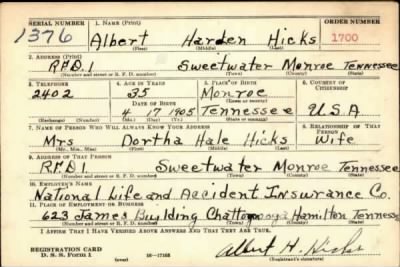 SERIAL NUMBER 1. NAME (Print) ORDER NUMBER
1376 Albert Harden Hicks 1700
(First) (Middle) (Last)
2. ADDRESS (Print)
RFD.1 Sweetwater Monroe Tennessee
(Number and street or R. F. D. number) (Town) (County) (State)
3. TELEPHONE 4. AGE IN YEARS 5. PLACE OF BIRTH 6. COUNTRY OF CITIZENSHIP
2402 35 Monroe
(Town or county)
DATE OF BIRTH
4 17 1905 Tennessee U.S.A
(Exchange) (Number) (Mo.) (Day) (Yr.) (State or country)
7. NAME OF PERSON WHO WILL ALWAYS KNOW YOUR ADDRESS 8. RELATIONSHIP OF THAT PERSON
Mrs Dortha Hale Hicks Wife
(Mr., Mrs., Miss) (First) (Middle) (Last)
9. ADDRESS OF THAT PERSON
RFD1 Sweetwater Monroe Tennessee
(Number and street or R. F. D. number) (Town) (County) (State)
10. EMPLOYER'S NAME
National Life and Accident Insurance Co.
11. PLACE OF EMPLOYMENT OR BUSINESS
623 James Building Chattogooga Hamilton Tennesse
(Number and street or R. F. D. number) (Town) (County) (State)
I AFFIRM THAT I HAVE VERIFIED ABOVE ANSWERS AND THAT THEY ARE TRUE.
REGISTRATION CARD
D. S. S. Form 1 16—17105 Albert H. Hicks
(Registrant's signature)